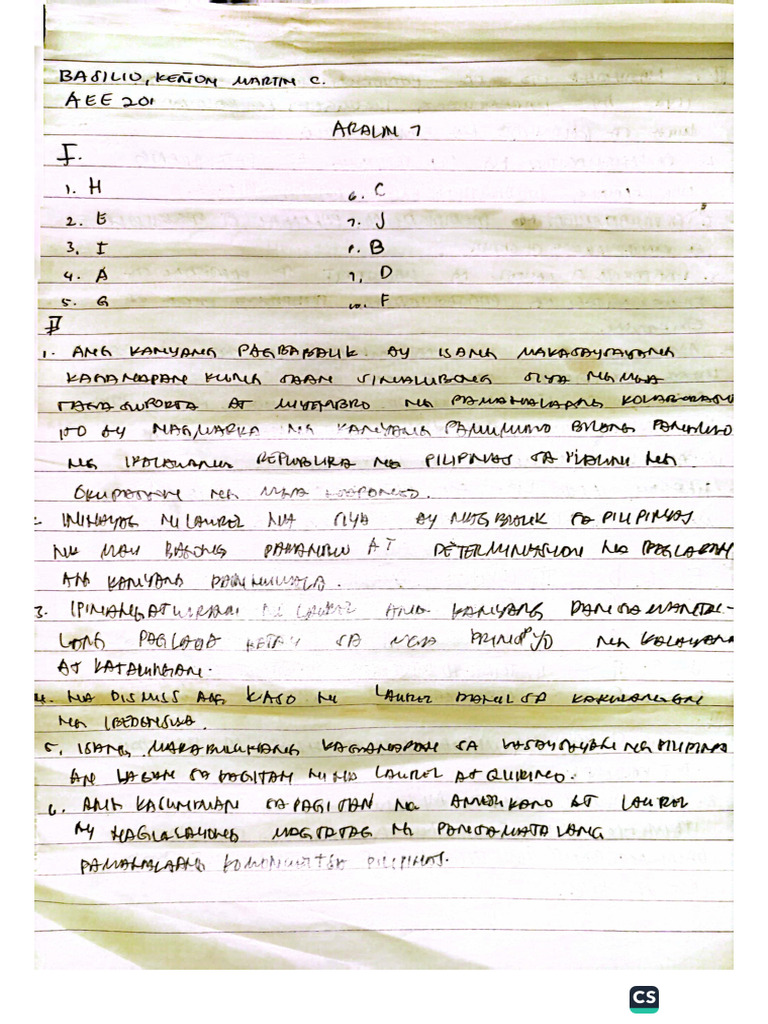 BASILIO, KEÑON MARTIN C.
AEE 201
ARALIN 7
I.
1. H
2. E
3. I
4. A
5. G
6. C
7. J
8. B
9. D
10. F
II
1. ANG KANYANG PAGBABALIK AY ISANG MAKASAYSAYANG
KAGANAPAN KUNG SAAN SINALUBONG SIYA NG MGA
TAGASUPORTA AT MIYEMBRO NG PAMAHALAANG
ITO AY NAGMARKA NG KANYANG PAMUMUNO BILANG PANGULO
NG IKALAWANG REPUBLIKA NG PILIPINAS SA ILALIM NG
OKUPASYON NG MGA
INIHAYAG NI LAUREL NA SIYA AY NAGBALIK SA PILIPINAS
NA MAY BAGONG PANANAW AT DETERMINASYON NA
ANG KANYANG
3. IPINANGATWIRAN NI LAUREL ANG KANYANG PANSAMANTA-
LONG SA MGA PRINSIPYO NG KALAYAAN
AT KATARUNGAN.
4. NA DISMISS ANG KASO NI LAUREL DAHIL SA KAKULANGAN
NG IBEDENSIYA.
5. ISANG MAKABULUHANG KAGANAPAN SA KASAYSAYAN NG PILIPINAS
AN LABAN SA PAGITAN NINA LAUREL AT QUIRINO.
6. ANG KASUNDUAN SA PAGITAN NG AMERIKANO AT LAUREL
AY NAGLALAYONG MAGTATAG NG PANSAMATALANG
PAMAHALAANG SA PILIPINAS.
CS